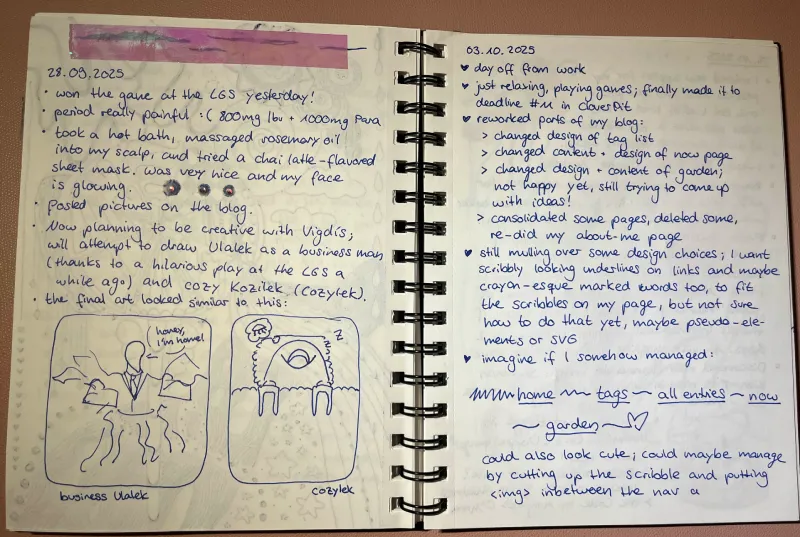 28.09.2025
• won the game at the LGS yesterday!
• period really painful :( 800mg Ibu + 1000mg Para
• took a hot bath, massaged rosemary oil
into my scalp, and tried a chai latte-flavored
sheet mask. was very nice and my face
is glowing.
• Posted pictures on the blog.
• Now planning to be creative with Vigdis;
will attempt to draw Ulalek as a business man
(thanks to a hilarious play at the LGS a
while ago) and cozy Kozilek (Cozylek).
• the final art looked similar to this:
honey,
I'm home!
z
z
business Ulalek
cozylek
03.10.2025
♥ day off from work
♥ just relaxing, playing games; finally made it to
deadline #11 in CloverPit
♥ reworked parts of my blog:
> changed design of tag list
> changed content + design of now page
> changed design + content of garden;
not happy yet, still trying to come up
with ideas!
> consolidated some pages, deleted some,
re-did my about-me page
♥ still mulling over some design choices; I want
scribbly looking underlines on links and maybe
crayon-esque marked words too, to fit
the scribbles on my page, but not sure
how to do that yet, maybe pseudo-ele-
ments or SVG
♥ imagine if I somehow managed:
home ~ tags ~ all entries ~ now
~ garden ~♡
could also look cute; could maybe manage
by cutting up the scribble and putting
<img> inbetween the nav a